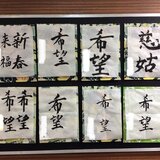 新春
来福
希望
希望
慈姑
希望
希望
希望
希望